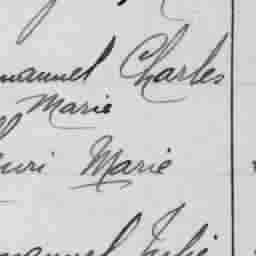 manuel Charles
Marie
enri Marie
manuel Julie